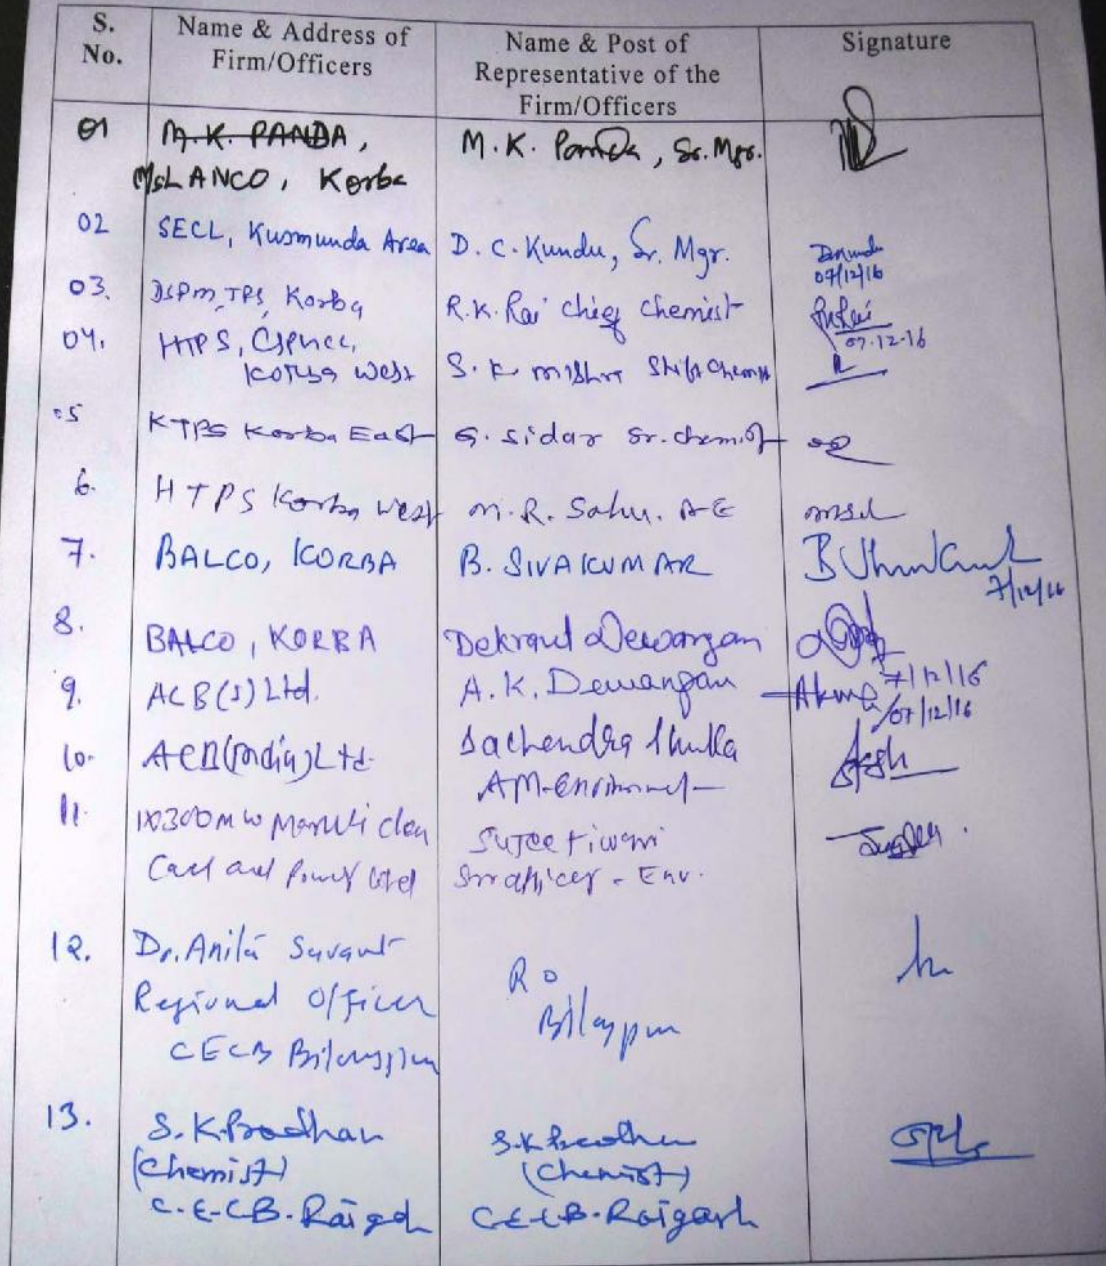 S. No. Name & Address of Firm/Officers Name & Post of Representative of the Firm/Officers Signature
01 M.K. PANDA, M. K. Panda, Sr. Mgr.
M/s LANCO, Korba
02 SECL, Kusmunda Area D. C. Kundu, Sr. Mgr.
07/12/16
03. DSPM, TPS, Korba R.K. Rai chief chemist
07-12-16
04. HTPS, CSPGCL, S. K mishra Shift Chemist
Korba West
05 KTPS Korba East G. Sidar Sr. chemist
6. HTPS Korba West M.R. Sahu. A-E
7. BALCO, KORBA B. SIVAKUMAR
7/12/16
8. BALCO, KORBA Dewangan
7/12/16
9. ACB(I) Ltd. A. K. Dewangan
07/12/16
10. ACB(India) Ltd. Sachendra Shukla
AM-Environment
11. 1x300mw Maruti clean
Coal and Power Ltd
Env.
12. Dr. Anita Savant
Regional Officer R O
CECB Bilaspur Bilaspur
13. S.K. Pradhan S.K Pradhan
(Chemist) (Chemist)
C.E.C.B. Raigarh C.E.C.B. Raigarh